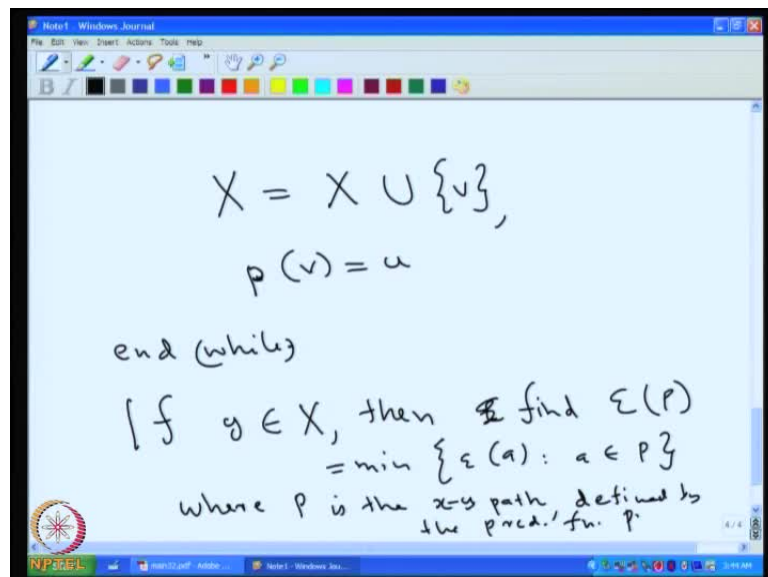 Note1 - Windows Journal
File Edit View Insert Actions Tools Help
B I
X = X ∪ {v},
p (v) = u
end (while)
If y ∈ X, then find ε(P)
= min { ε (a) : a ∈ P }
where P is the x-y path defined by
the pred. fn. p.
4 / 4
NPTEL
main32.pdf - Adobe ...
Note1 - Windows Jou...
3:44 AM